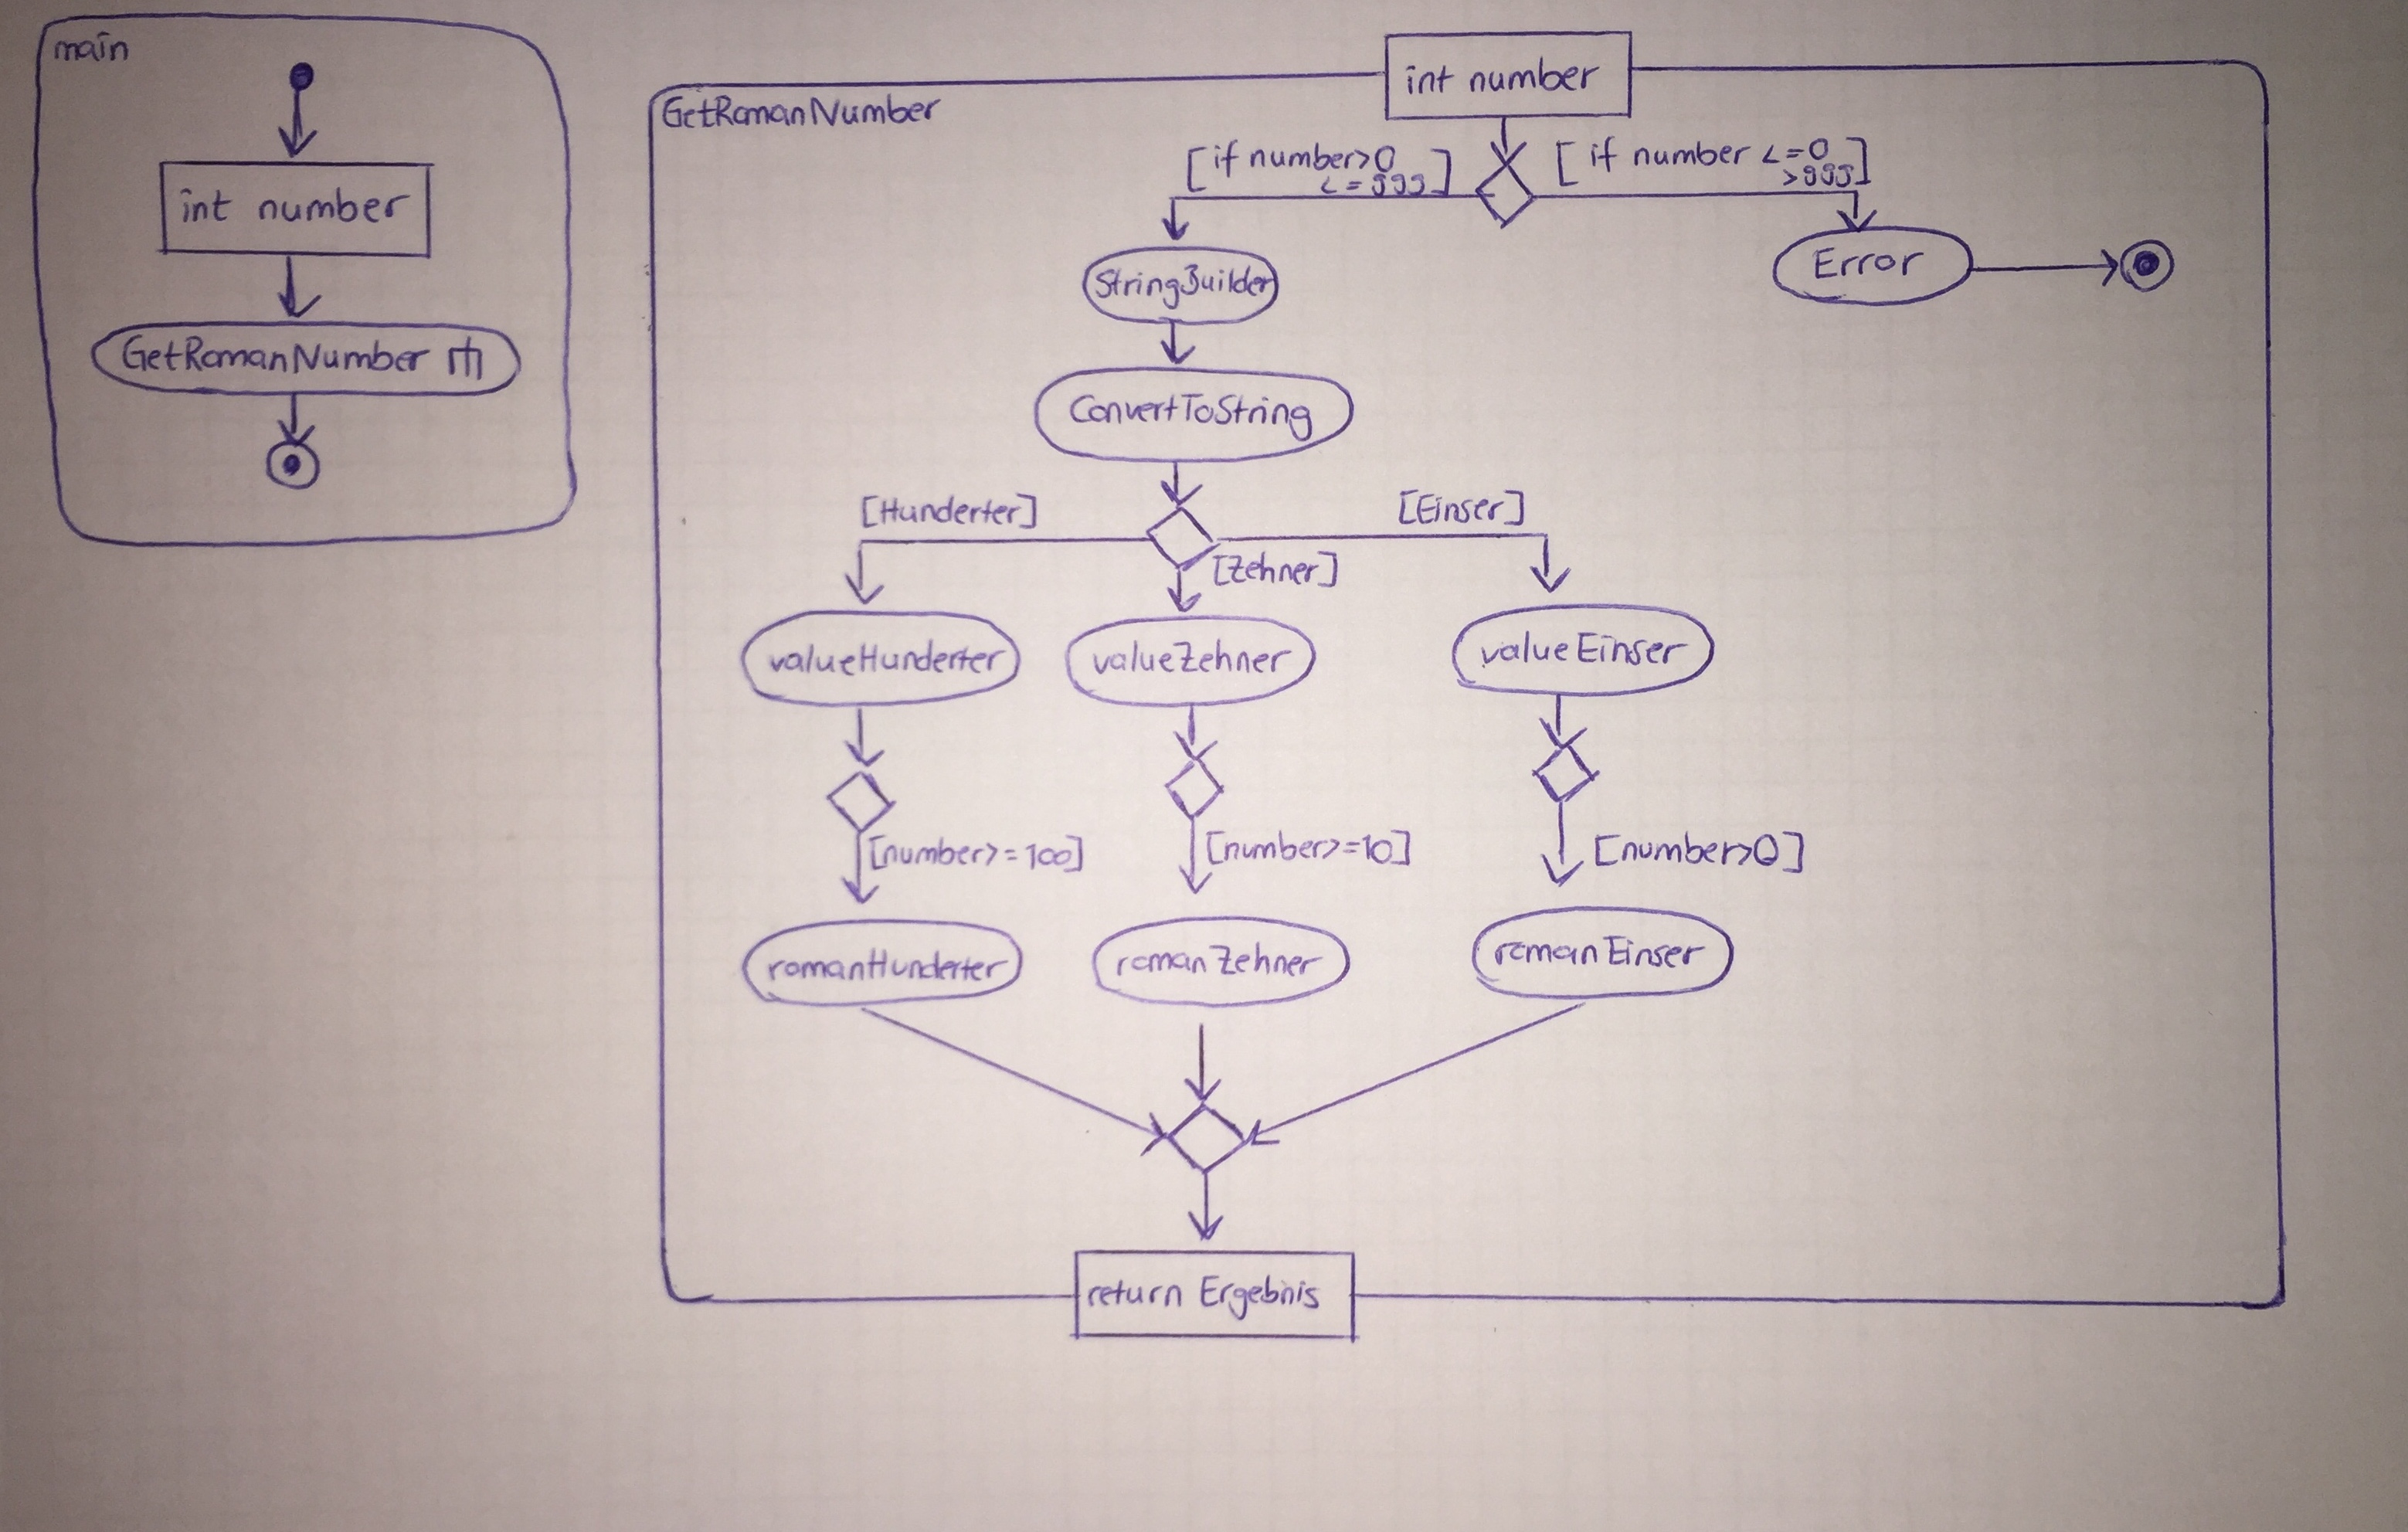 main
int number
GetRomanNumber
GetRomanNumber
int number
[if number>0
<=999]
[if number <=0
>999]
StringBuilder
Error
ConvertToString
[Hunderter]
[Zehner]
[Einser]
valueHunderter
valueZehner
valueEinser
[number>=100]
[number>=10]
[number>0]
romanHunderter
romanZehner
romanEinser
return Ergebnis